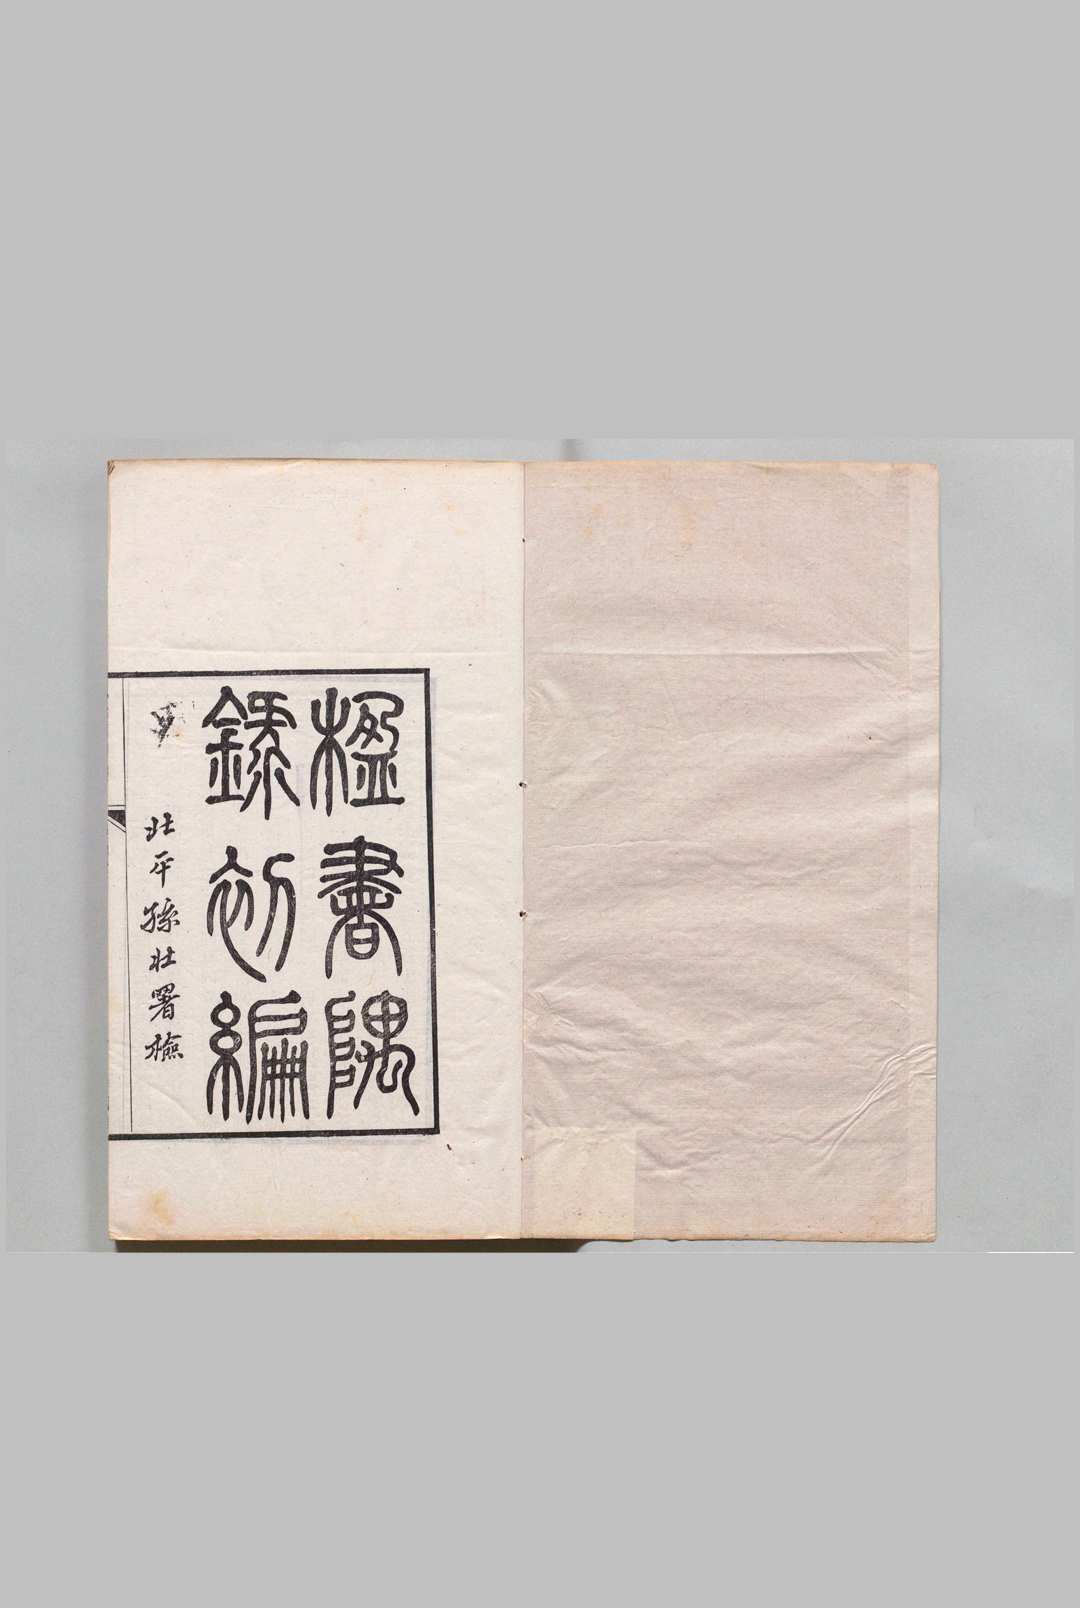 楹書隅
錄初編
北平孫壯署檢